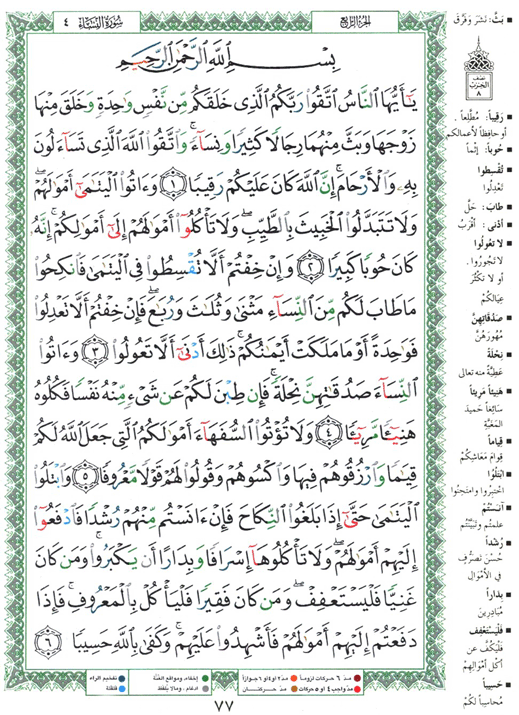 سُورَةُ النِّسَاءِ ٤
الجزء الرابع
بِسْمِ اللَّهِ الرَّحْمَٰنِ الرَّحِيمِ
يَٰٓأَيُّهَا ٱلنَّاسُ ٱتَّقُوا۟ رَبَّكُمُ ٱلَّذِى خَلَقَكُم مِّن نَّفْسٍ وَٰحِدَةٍ وَخَلَقَ مِنْهَا
زَوْجَهَا وَبَثَّ مِنْهُمَا رِجَالًا كَثِيرًا وَنِسَآءً ۚ وَٱتَّقُوا۟ ٱللَّهَ ٱلَّذِى تَسَآءَلُونَ
بِهِۦ وَٱلْأَرْحَامَ ۚ إِنَّ ٱللَّهَ كَانَ عَلَيْكُمْ رَقِيبًا ١ وَءَاتُوا۟ ٱلْيَتَٰمَىٰٓ أَمْوَٰلَهُمْ ۖ
وَلَا تَتَبَدَّلُوا۟ ٱلْخَبِيثَ بِٱلطَّيِّبِ ۖ وَلَا تَأْكُلُوٓا۟ أَمْوَٰلَهُمْ إِلَىٰٓ أَمْوَٰلِكُمْ ۚ إِنَّهُۥ
كَانَ حُوبًا كَبِيرًا ٢ وَإِنْ خِفْتُمْ أَلَّا تُقْسِطُوا۟ فِى ٱلْيَتَٰمَىٰ فَٱنكِحُوا۟
مَا طَابَ لَكُم مِّنَ ٱلنِّسَآءِ مَثْنَىٰ وَثُلَٰثَ وَرُبَٰعَ ۖ فَإِنْ خِفْتُمْ أَلَّا تَعْدِلُوا۟
فَوَٰحِدَةً أَوْ مَا مَلَكَتْ أَيْمَٰنُكُمْ ۚ ذَٰلِكَ أَدْنَىٰٓ أَلَّا تَعُولُوا۟ ٣ وَءَاتُوا۟
ٱلنِّسَآءَ صَدُقَٰتِهِنَّ نِحْلَةً ۚ فَإِن طِبْنَ لَكُمْ عَن شَىْءٍ مِّنْهُ نَفْسًا فَكُلُوهُ
هَنِيٓـًٔا مَّرِيٓـًٔا ٤ وَلَا تُؤْتُوا۟ ٱلسُّفَهَآءَ أَمْوَٰلَكُمُ ٱلَّتِى جَعَلَ ٱللَّهُ لَكُمْ
قِيَٰمًا وَٱرْزُقُوهُمْ فِيهَا وَٱكْسُوهُمْ وَقُولُوا۟ لَهُمْ قَوْلًا مَّعْرُوفًا ٥ وَٱبْتَلُوا۟
ٱلْيَتَٰمَىٰ حَتَّىٰٓ إِذَا بَلَغُوا۟ ٱلنِّكَاحَ فَإِنْ ءَانَسْتُم مِّنْهُمْ رُشْدًا فَٱدْفَعُوٓا۟
إِلَيْهِمْ أَمْوَٰلَهُمْ ۖ وَلَا تَأْكُلُوهَآ إِسْرَافًا وَبِدَارًا أَن يَكْبَرُوا۟ ۚ وَمَن كَانَ
غَنِيًّا فَلْيَسْتَعْفِفْ ۖ وَمَن كَانَ فَقِيرًا فَلْيَأْكُلْ بِٱلْمَعْرُوفِ ۚ فَإِذَا
دَفَعْتُمْ إِلَيْهِمْ أَمْوَٰلَهُمْ فَأَشْهِدُوا۟ عَلَيْهِمْ ۚ وَكَفَىٰ بِٱللَّهِ حَسِيبًا ٦
بَثَّ: نَشَرَ وَفَرَّقَ
نصف
الحزب
٨
رَقِيبًا: مُطَّلِعاً .
أو حافِظاً لأعمالكم
حُوباً: إثْماً
تُقْسِطُوا
تَعْدِلُوا
طَابَ: حَلَّ
أدْنى: أقْرَبُ
لا تَعُولُوا
لا تَجُورُوا.
أو لا تَكْثُرَ
عِيَالُكُمْ
صَدُقَاتِهِنَّ
مُهُورَهُنَّ
نِحْلَةً
عَطِيَّةً منه تعالى
هَنِيئاً مَرِيئاً
سَائِغاً حَمِيدَ
المَغَبَّةِ
قِيَاماً
قِوامَ مَعَاشِكُم
ابْتَلُوا
اختَبِروا وامتَحِنوا
آنَسْتُمْ
علمتم وتَبَيَّنْتُم
رُشْداً
حُسْنَ تَصَرُّفٍ
في الأَمْوَالِ
بِدَاراً
مُبَادِرِينَ
فَلْيَسْتَعْفِفْ
فَلْيَكُفَّ عَن
أكْلِ أَمْوَالِهِمْ
حَسِيباً
مُحاسِباً لكُمْ
مدّ ٦ حركات لزوماً
مدّ ٢ أو ٤ أو ٦ جوازاً
إخفاء، ومواقع الغُنَّة
تفخيم الراء
مدّ واجب ٤ أو ٥ حركات
مدّ حركتان
ادغام، ومالا يُلفظ
قلقلة
٧٧